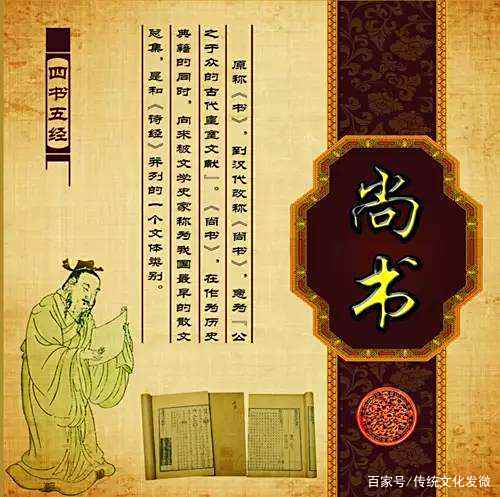 尚书
原称《书》，到汉代改称《尚书》，意为『公
之于众的古代皇室文献』。《尚书》，在作为历史
典籍的同时，向来被文学史家称为我国最早的散文
总集，是和《诗经》并列的一个文体类别。
四书五经
百家号/传统文化发微